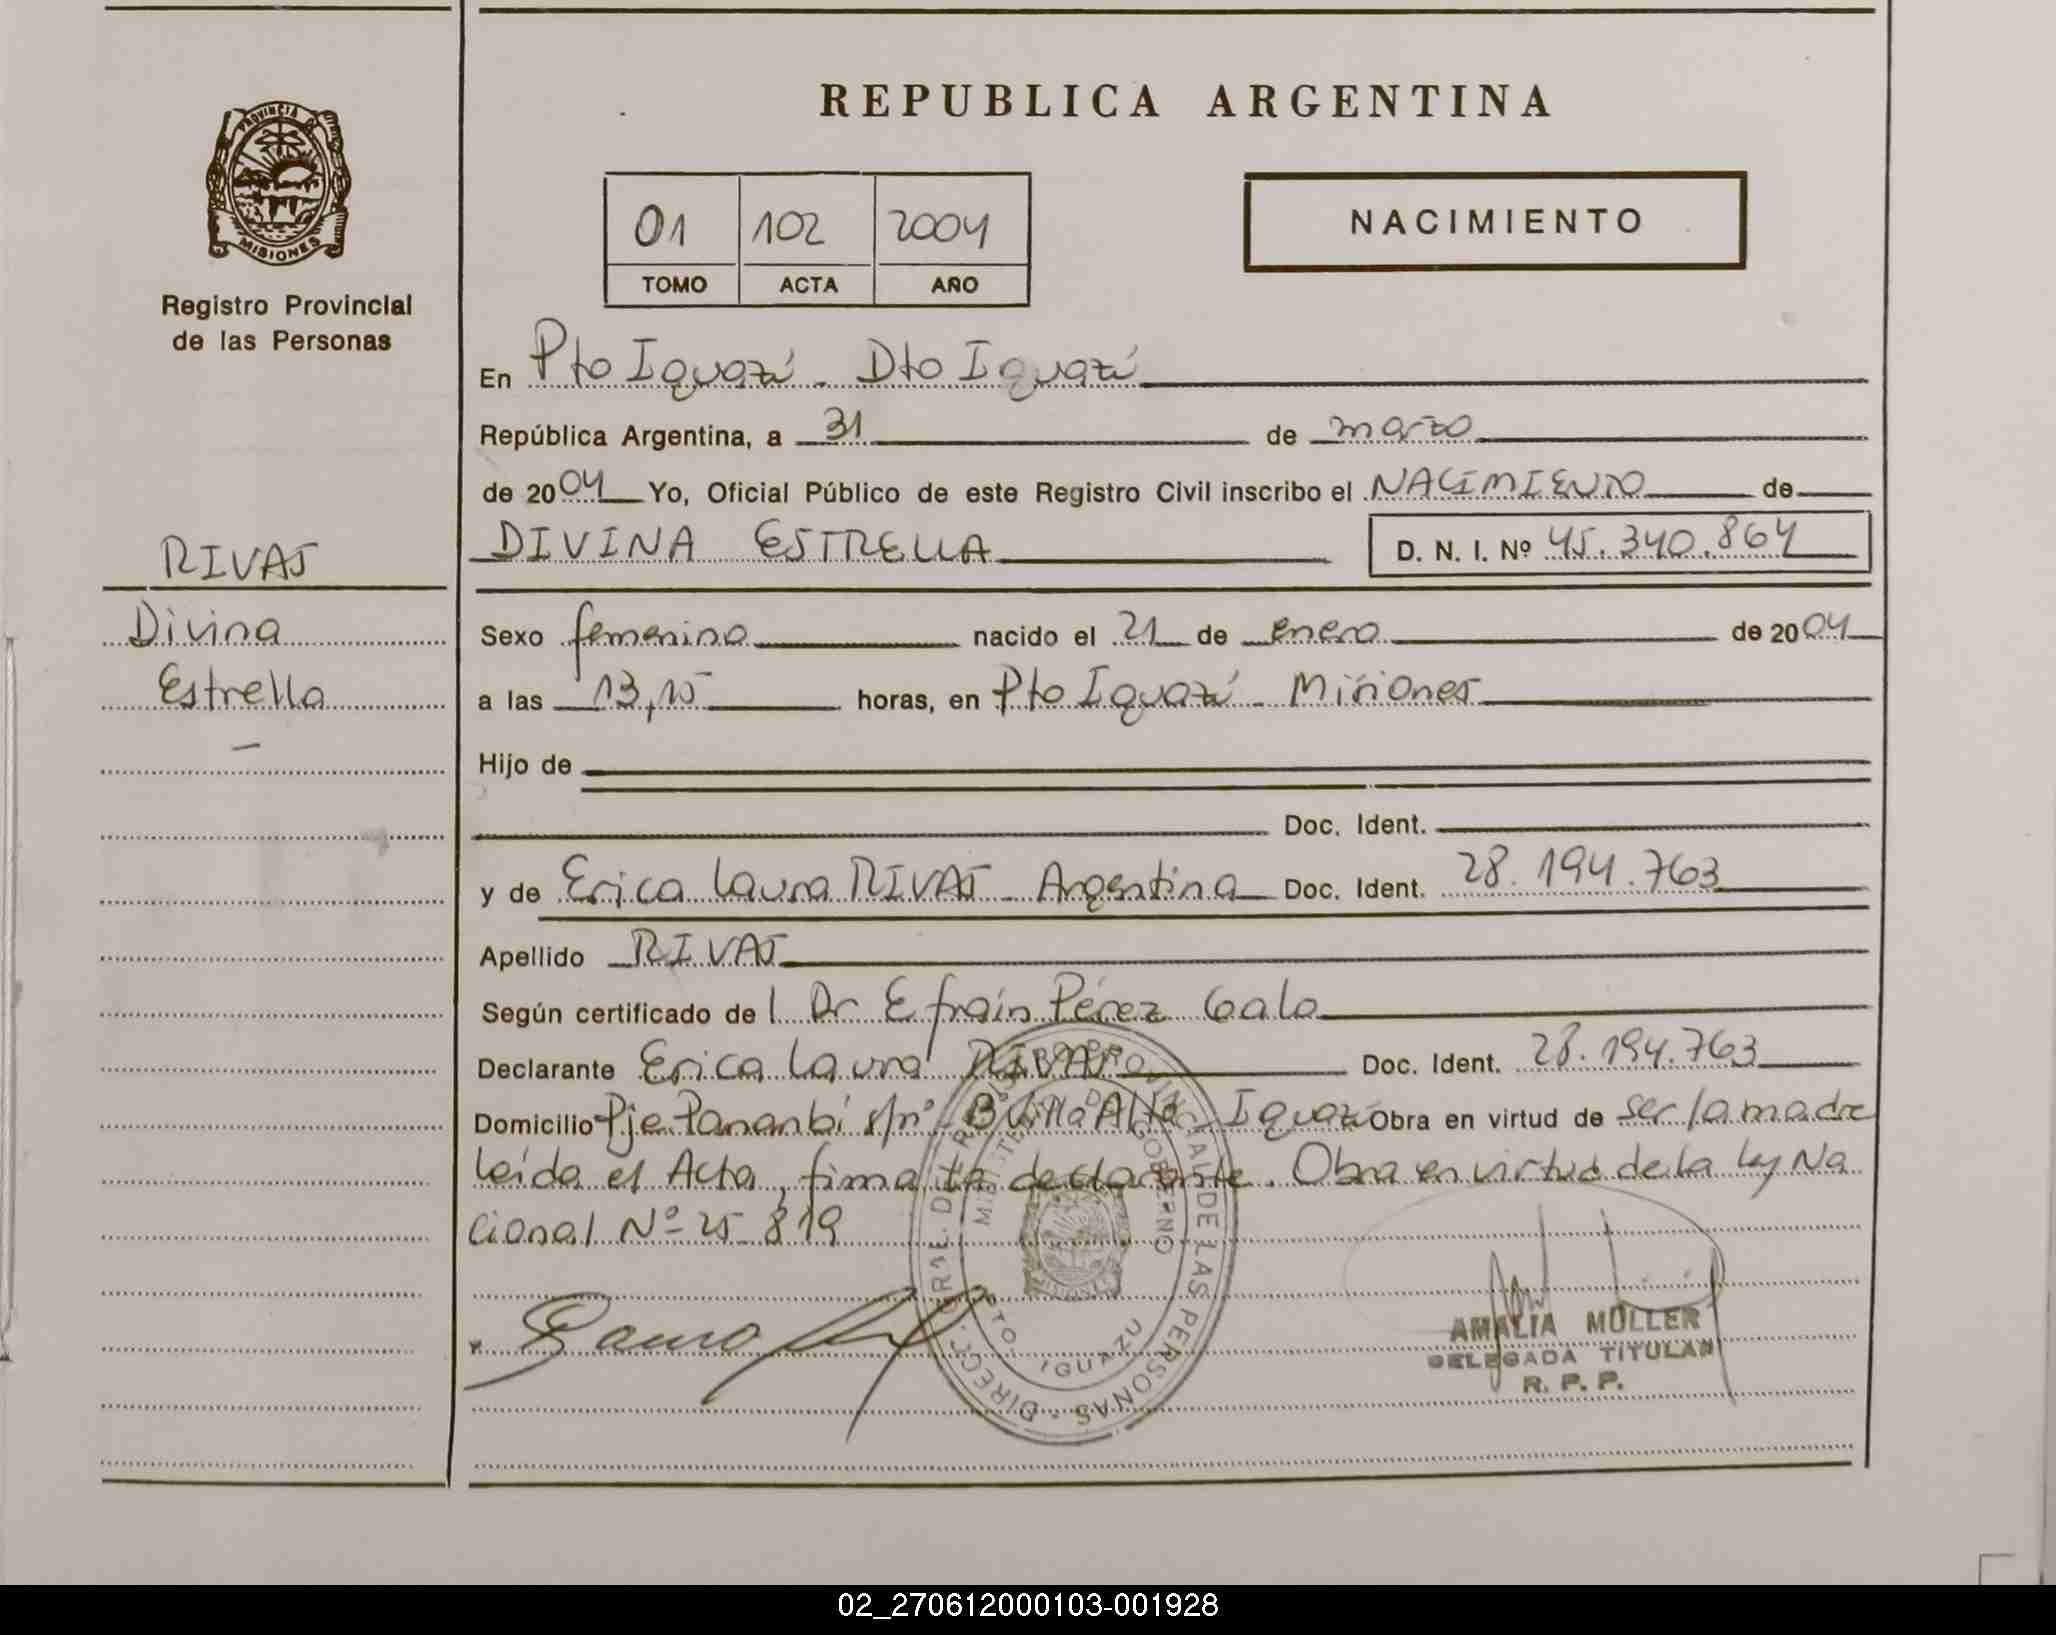 REPUBLICA ARGENTINA
PROVINCIA DE
MISIONES
Registro Provincial
de las Personas
01 102 2004
TOMO ACTA AÑO
NACIMIENTO
En Pto Iguazú - Dto Iguazú
República Argentina, a 31 de marzo
de 2004 Yo, Oficial Público de este Registro Civil inscribo el NACIMIENTO de
DIVINA ESTRELLA D. N. I. Nº 45.340.864
RIVAS
Divina
Estrella
Sexo femenino nacido el 21 de enero de 2004
a las 13,15 horas, en Pto Iguazú - Misiones
Hijo de
Doc. Ident.
y de Erica Laura RIVAS - Argentina Doc. Ident. 28.194.763
Apellido RIVAS
Según certificado de l Dr Efraín Pérez Galo
Declarante Erica Laura RIVAS Doc. Ident. 28.194.763
Domicilio Pje Panambí s/nº B Villa Alta - Iguazú Obra en virtud de ser la madre
leída el Acta, firma la declarante. Obra en virtud de la ley Na
cional Nº 25.819
DIRECC. GRAL. DEL REGISTRO PROVINCIAL DE LAS PERSONAS
MINISTERIO DE GOBIERNO
PTO. IGUAZU
AMALIA MULLER
DELEGADA TITULAR
R. P. P.
02_270612000103-001928